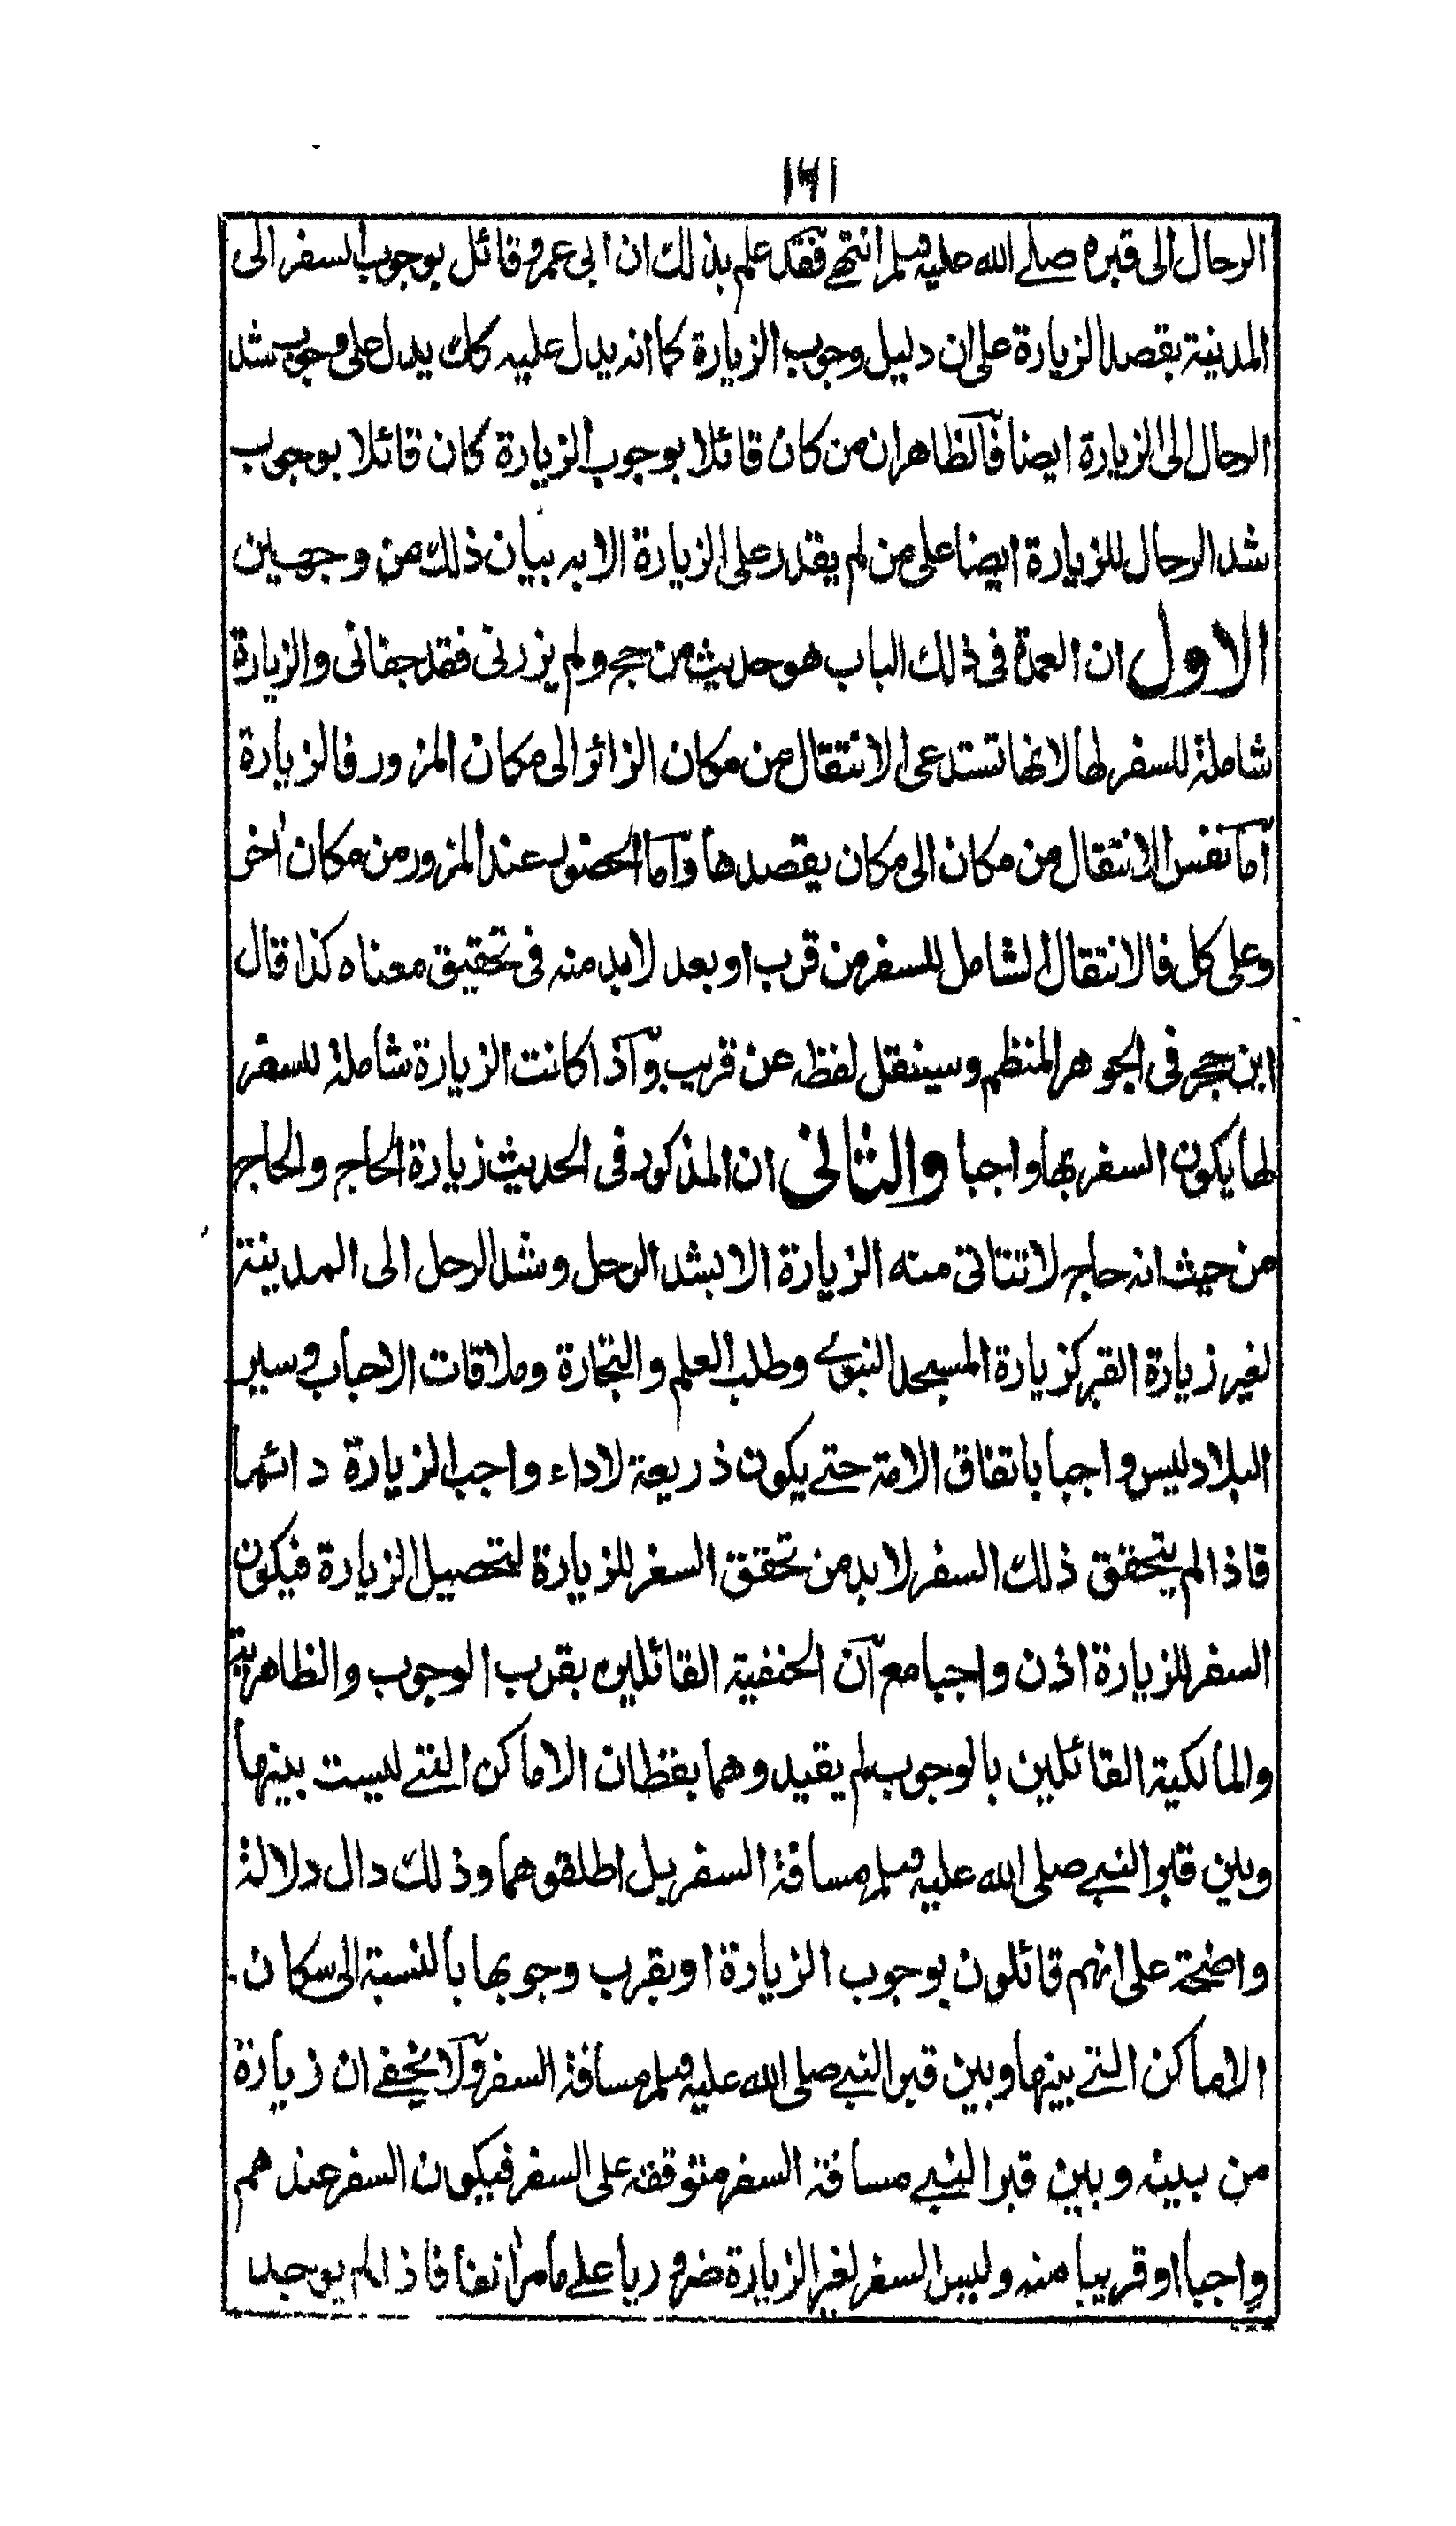 ١٦١
الرحال الى قبره صلے الله عليه وسلم انتهے فقد علم بذلك ان ابى عمرو قائل بوجوب السفر الى
المدينة بقصد الزيارة على ان دليل وجوب الزيارة كما انه يدل عليه كك يدل على وجوب شد
الرحال الى الزيارة ايضا فالظاهر ان من كان قائلا بوجوب الزيارة كان قائلا بوجوب
شد الرحال للزيارة ايضا على من لم يقدر على الزيارة الا به بيان ذلك من وجهين
الاول ان العمدة فى ذلك الباب هو حديث من حج ولم يزرنى فقد جفانى والزيارة
شاملة للسفر لها لانها تستدعى الانتقال من مكان الزائر الى مكان المزور فالزيارة
اما نفس الانتقال من مكان الى مكان يقصدها واما الحضور عند المزور من مكان اخر
وعلى كل فالانتقال الشامل للسفر من قرب او بعد لابد منه فى تحقيق معناه كذا قال
ابن حجر فى الجوهر المنظم وسينقل لفظه عن قريب واذا كانت الزيارة شاملة للسفر
لها يكون السفر بها واجبا والثانى ان المذكور فى الحديث زيارة الحاج والحاج
من حيث انه حاج لا تتاتى منه الزيارة الا بشد الرحل وشد الرحل الى المدينة
لغير زيارة القبر كزيارة المسجد النبوے وطلب العلم والتجارة وملاقات الاحباب وسير
البلاد ليس واجبا باتفاق الامة حتے يكون ذريعة لاداء واجب الزيارة دائما
فاذا لم يتحقق ذلك السفر لابد من تحقق السفر للزيارة لتحصيل الزيارة فيكون
السفر للزيارة اذن واجبا مع ان الحنفية القائلين بقرب الوجوب والظاهرية
والمالكية القائلين بالوجوب لم يقيدوهما بقطان الاماكن التے ليست بينها
وبين قبر النبے صلى الله عليه وسلم مسافة السفر بل اطلقوهما وذلك دال دلالة
واضحة على انهم قائلون بوجوب الزيارة او بقرب وجوبها بالنسبة الى سكان
الاماكن التے بينها وبين قبر النبے صلى الله عليه وسلم مسافة السفر ولا يخفے ان زيارة
من بينه وبين قبر النبے مسافة السفر متوقفة على السفر فيكون السفر عندهم
واجبا او قريبا منه وليس السفر لغير الزيارة ضروريا علے ما مر انفا فاذا لم يوجد